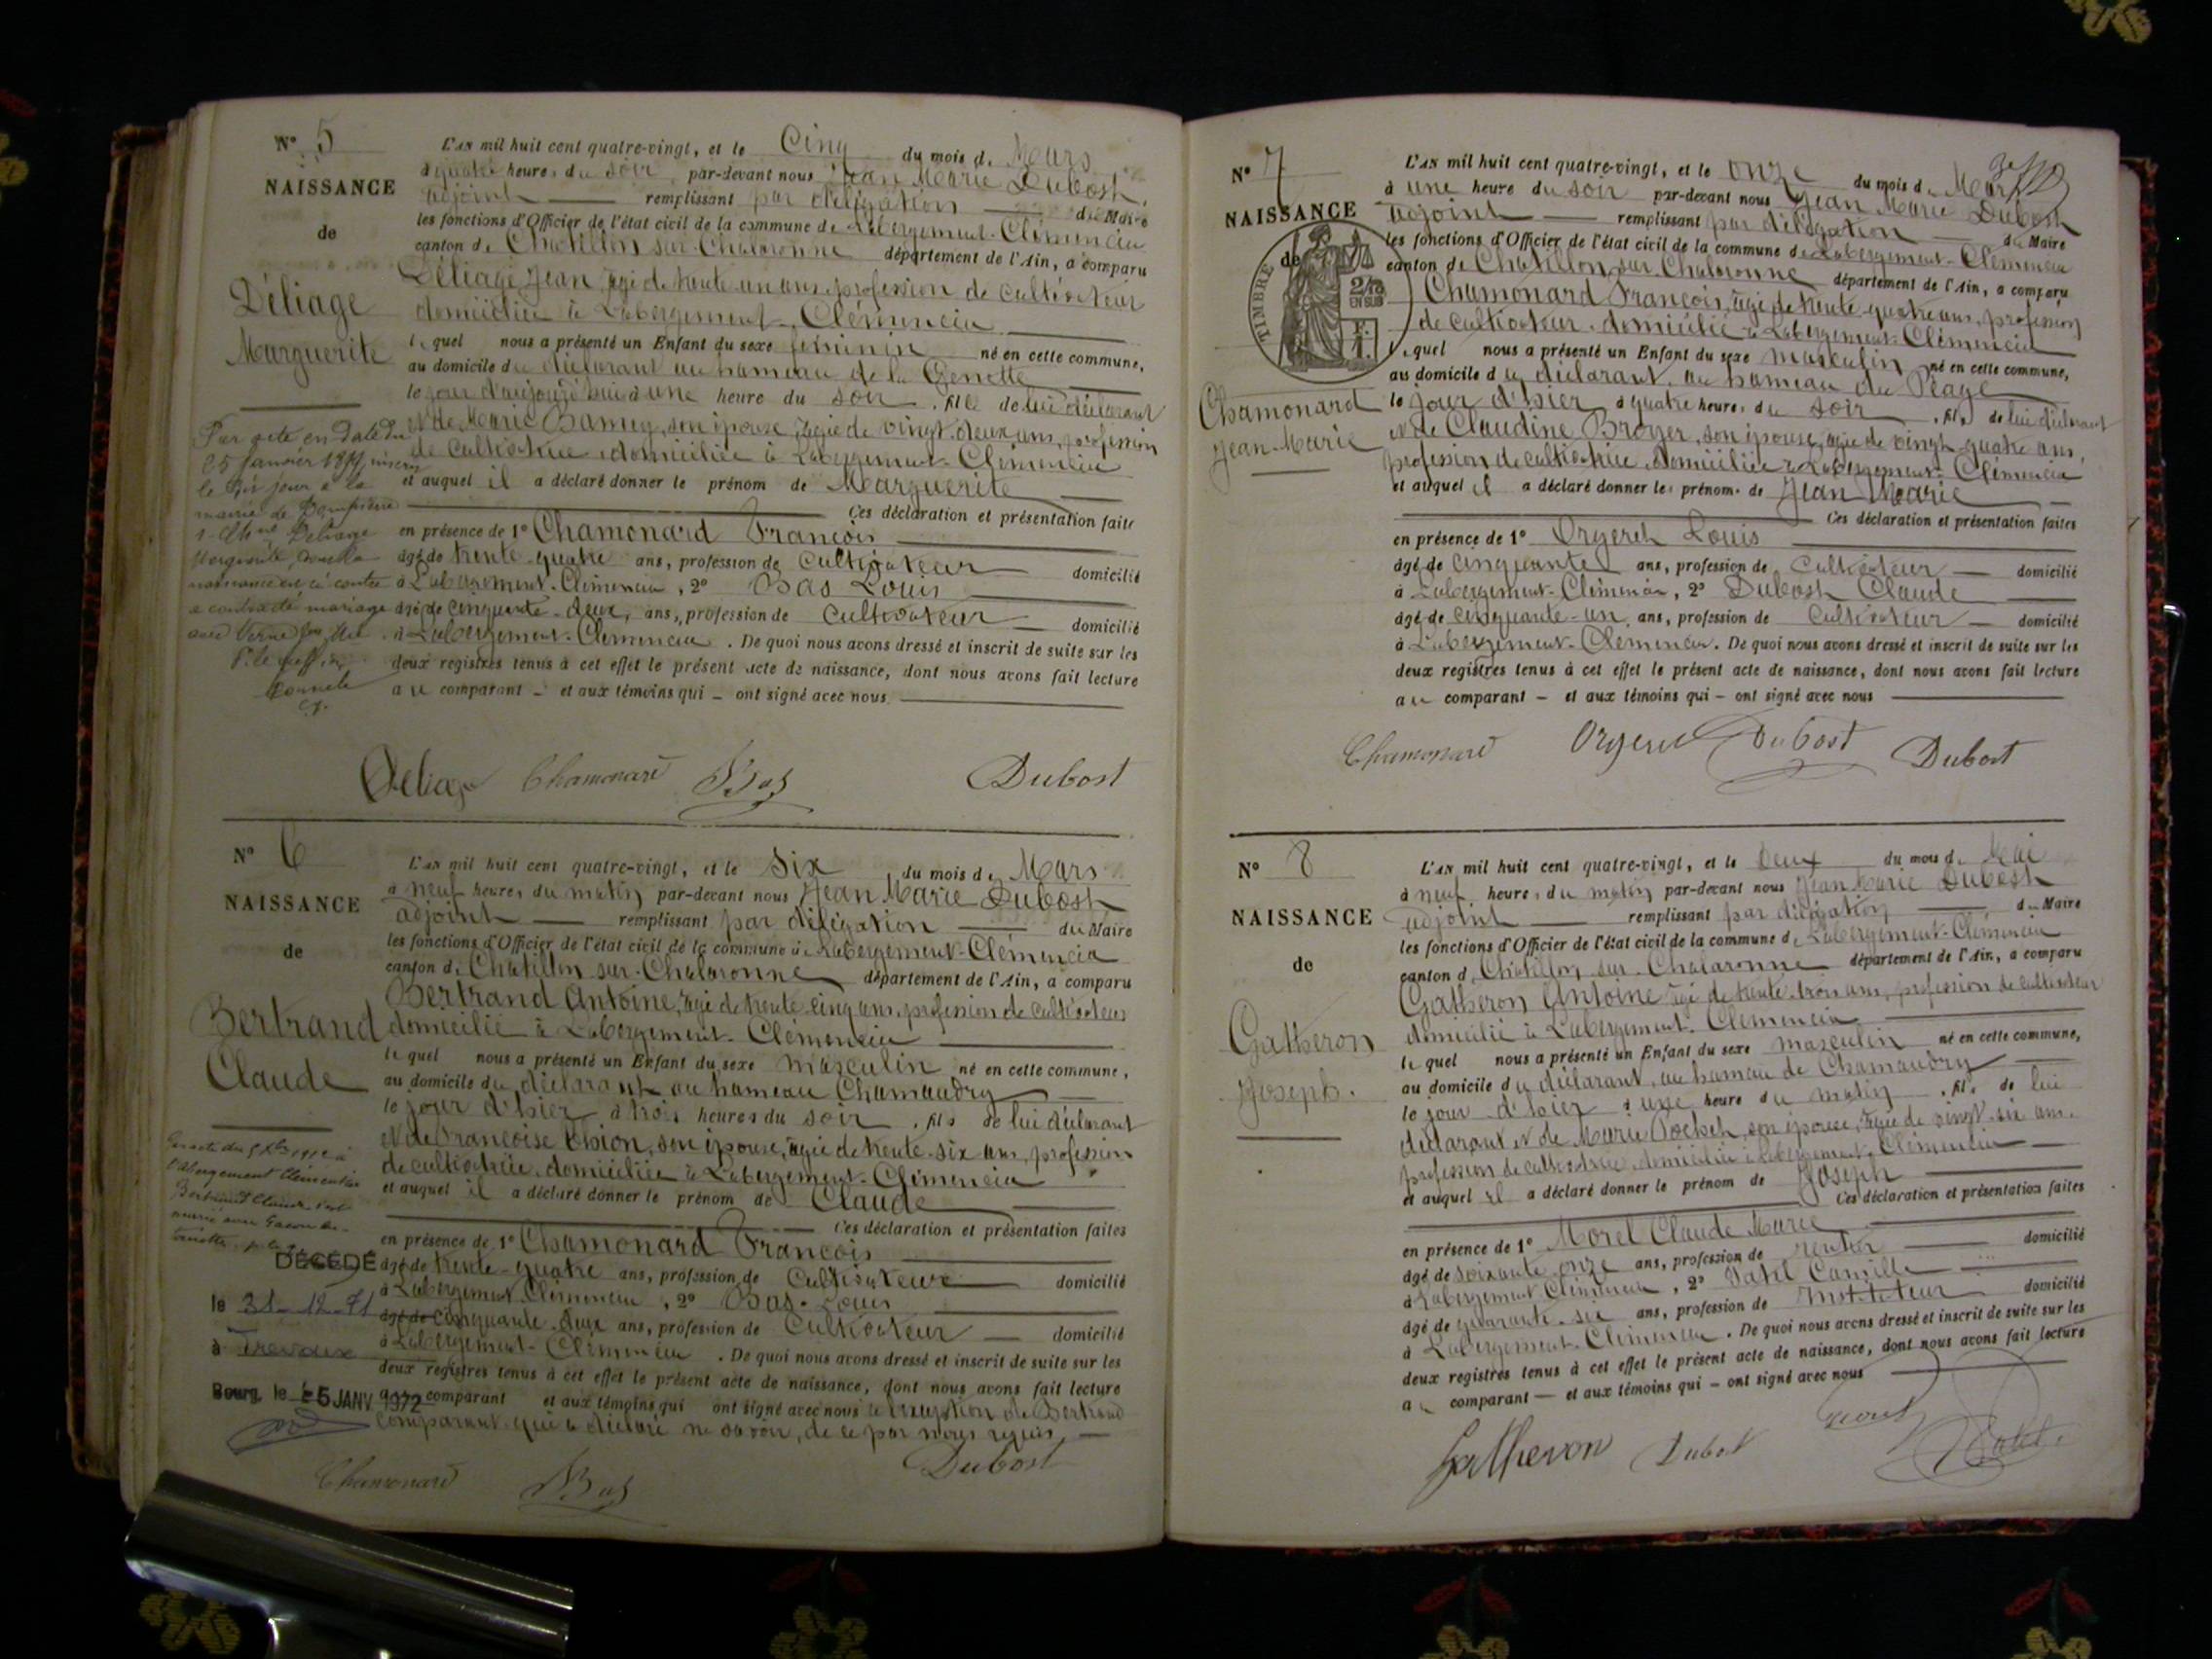 N° 5
NAISSANCE
de
Déliage
Marguerite
Par acte en date du
25 janvier
mairie de Dompierre
Déliage
Marguerite, dont la
naissance est ci-contre
a contracté mariage
avec
L'AN mil huit cent quatre-vingt, et le Cinq du mois de Mars
à quatre heures du soir, par-devant nous Jean Marie Dubost,
adjoint remplissant par délégation du Maire
les fonctions d'Officier de l'état civil de la commune de Labergement-Clémencia
canton de Chatillon sur Chalaronne département de l'Ain, a comparu
Déliage Jean, âgé de trente un ans, profession de cultivateur
domicilié à Labergement-Clémencia
lequel nous a présenté un Enfant du sexe féminin né en cette commune,
au domicile du déclarant au hameau de la Genette
le jour d'aujourd'hui à une heure du soir, fille de lui déclarant
et de Marie son épouse, âgée de vingt-deux ans, profession
de cultivatrice domiciliée à Labergement-Clémencia
et auquel il a déclaré donner le prénom de Marguerite
Ces déclaration et présentation faites
en présence de 1° Chamonard François
âgé de trente-quatre ans, profession de cultivateur domicilié
à Labergement-Clémencia, 2° Bas Louis
âgé de cinquante-deux ans, profession de cultivateur domicilié
à Labergement-Clémencia. De quoi nous avons dressé et inscrit de suite sur les
deux registres tenus à cet effet le présent acte de naissance, dont nous avons fait lecture
au comparant - et aux témoins qui - ont signé avec nous.
Déliage Chamonard Bas Dubost
N° 6
NAISSANCE
de
Bertrand
Claude
l'Abergement Clémenciat
Bertrand Claude s'est
marié avec
DÉCÉDÉ
le 31-12-71
à Trevoux
Bourg, le 5 JANV 1972
L'AN mil huit cent quatre-vingt, et le Six du mois de Mars
à neuf heures du matin par-devant nous Jean Marie Dubost
adjoint remplissant par délégation du Maire
les fonctions d'Officier de l'état civil de la commune de Labergement-Clémencia
canton de Chatillon sur Chalaronne département de l'Ain, a comparu
Bertrand Antoine, âgé de trente cinq ans, profession de cultivateur
domicilié à Labergement-Clémencia
lequel nous a présenté un Enfant du sexe masculin né en cette commune,
au domicile du déclarant au hameau Chamaudry
le jour d'hier à trois heures du soir, fils de lui déclarant
et de Françoise son épouse, âgée de trente-six ans, profession
de cultivatrice, domiciliée à Labergement-Clémencia
et auquel il a déclaré donner le prénom de Claude
Ces déclaration et présentation faites
en présence de 1° Chamonard François
âgé de trente-quatre ans, profession de cultivateur domicilié
à Labergement-Clémencia, 2° Bas Louis
âgé de cinquante-deux ans, profession de cultivateur domicilié
à Labergement-Clémencia. De quoi nous avons dressé et inscrit de suite sur les
deux registres tenus à cet effet le présent acte de naissance, dont nous avons fait lecture
au comparant et aux témoins qui ont signé avec nous à l'exception de Bertrand
comparant qui a déclaré ne savoir, de ce par nous requis,
Chamonard Bas Dubost
N° 7
NAISSANCE
de
TIMBRE
2/10
EN SUS
Chamonard
Jean-Marie
L'AN mil huit cent quatre-vingt, et le onze du mois de Mars
à une heure du soir par-devant nous Jean Marie Dubost
adjoint remplissant par délégation du Maire
les fonctions d'Officier de l'état civil de la commune de Labergement-Clémencia
canton de Chatillon sur Chalaronne département de l'Ain, a comparu
Chamonard François, âgé de trente-quatre ans, profession
de cultivateur, domicilié à Labergement-Clémencia
lequel nous a présenté un Enfant du sexe masculin né en cette commune,
au domicile du déclarant, au hameau du Péage
le jour d'hier à quatre heures du soir, fils de lui déclarant
et de Claudine Broyer, son épouse, âgée de vingt-quatre ans,
profession de cultivatrice, domiciliée à Labergement-Clémencia
et auquel il a déclaré donner les prénoms de Jean Marie
Ces déclaration et présentation faites
en présence de 1° Orgeret Louis
âgé de cinquante ans, profession de cultivateur domicilié
à Labergement-Clémencia, 2° Dubost Claude
âgé de cinquante-un ans, profession de cultivateur domicilié
à Labergement-Clémencia. De quoi nous avons dressé et inscrit de suite sur les
deux registres tenus à cet effet le présent acte de naissance, dont nous avons fait lecture
au comparant - et aux témoins qui - ont signé avec nous
Chamonard Orgeret Dubost Dubost
N° 8
NAISSANCE
de
Gatheron
Joseph.
L'AN mil huit cent quatre-vingt, et le Deux du mois de Mai
à neuf heures du matin par-devant nous Jean Marie Dubost
adjoint remplissant par délégation du Maire
les fonctions d'Officier de l'état civil de la commune de Labergement-Clémencia
canton de Chatillon sur Chalaronne département de l'Ain, a comparu
Gatheron Antoine âgé de trente-trois ans, profession de cultivateur
domicilié à Labergement-Clémencia
lequel nous a présenté un Enfant du sexe masculin né en cette commune,
au domicile du déclarant, au hameau de Chamaudry
le jour d'hier à une heure du matin, fils de lui
déclarant et de Marie son épouse, âgée de vingt-six ans,
profession de cultivatrice, domiciliée à Labergement-Clémencia
et auquel il a déclaré donner le prénom de Joseph
Ces déclaration et présentation faites
en présence de 1° Morel Claude Marie
âgé de soixante onze ans, profession de rentier domicilié
à Labergement-Clémencia, 2° Camille
âgé de quarante-six ans, profession de Instituteur domicilié
à Labergement-Clémencia. De quoi nous avons dressé et inscrit de suite sur les
deux registres tenus à cet effet le présent acte de naissance, dont nous avons fait lecture
au comparant — et aux témoins qui - ont signé avec nous
Gatheron Dubost